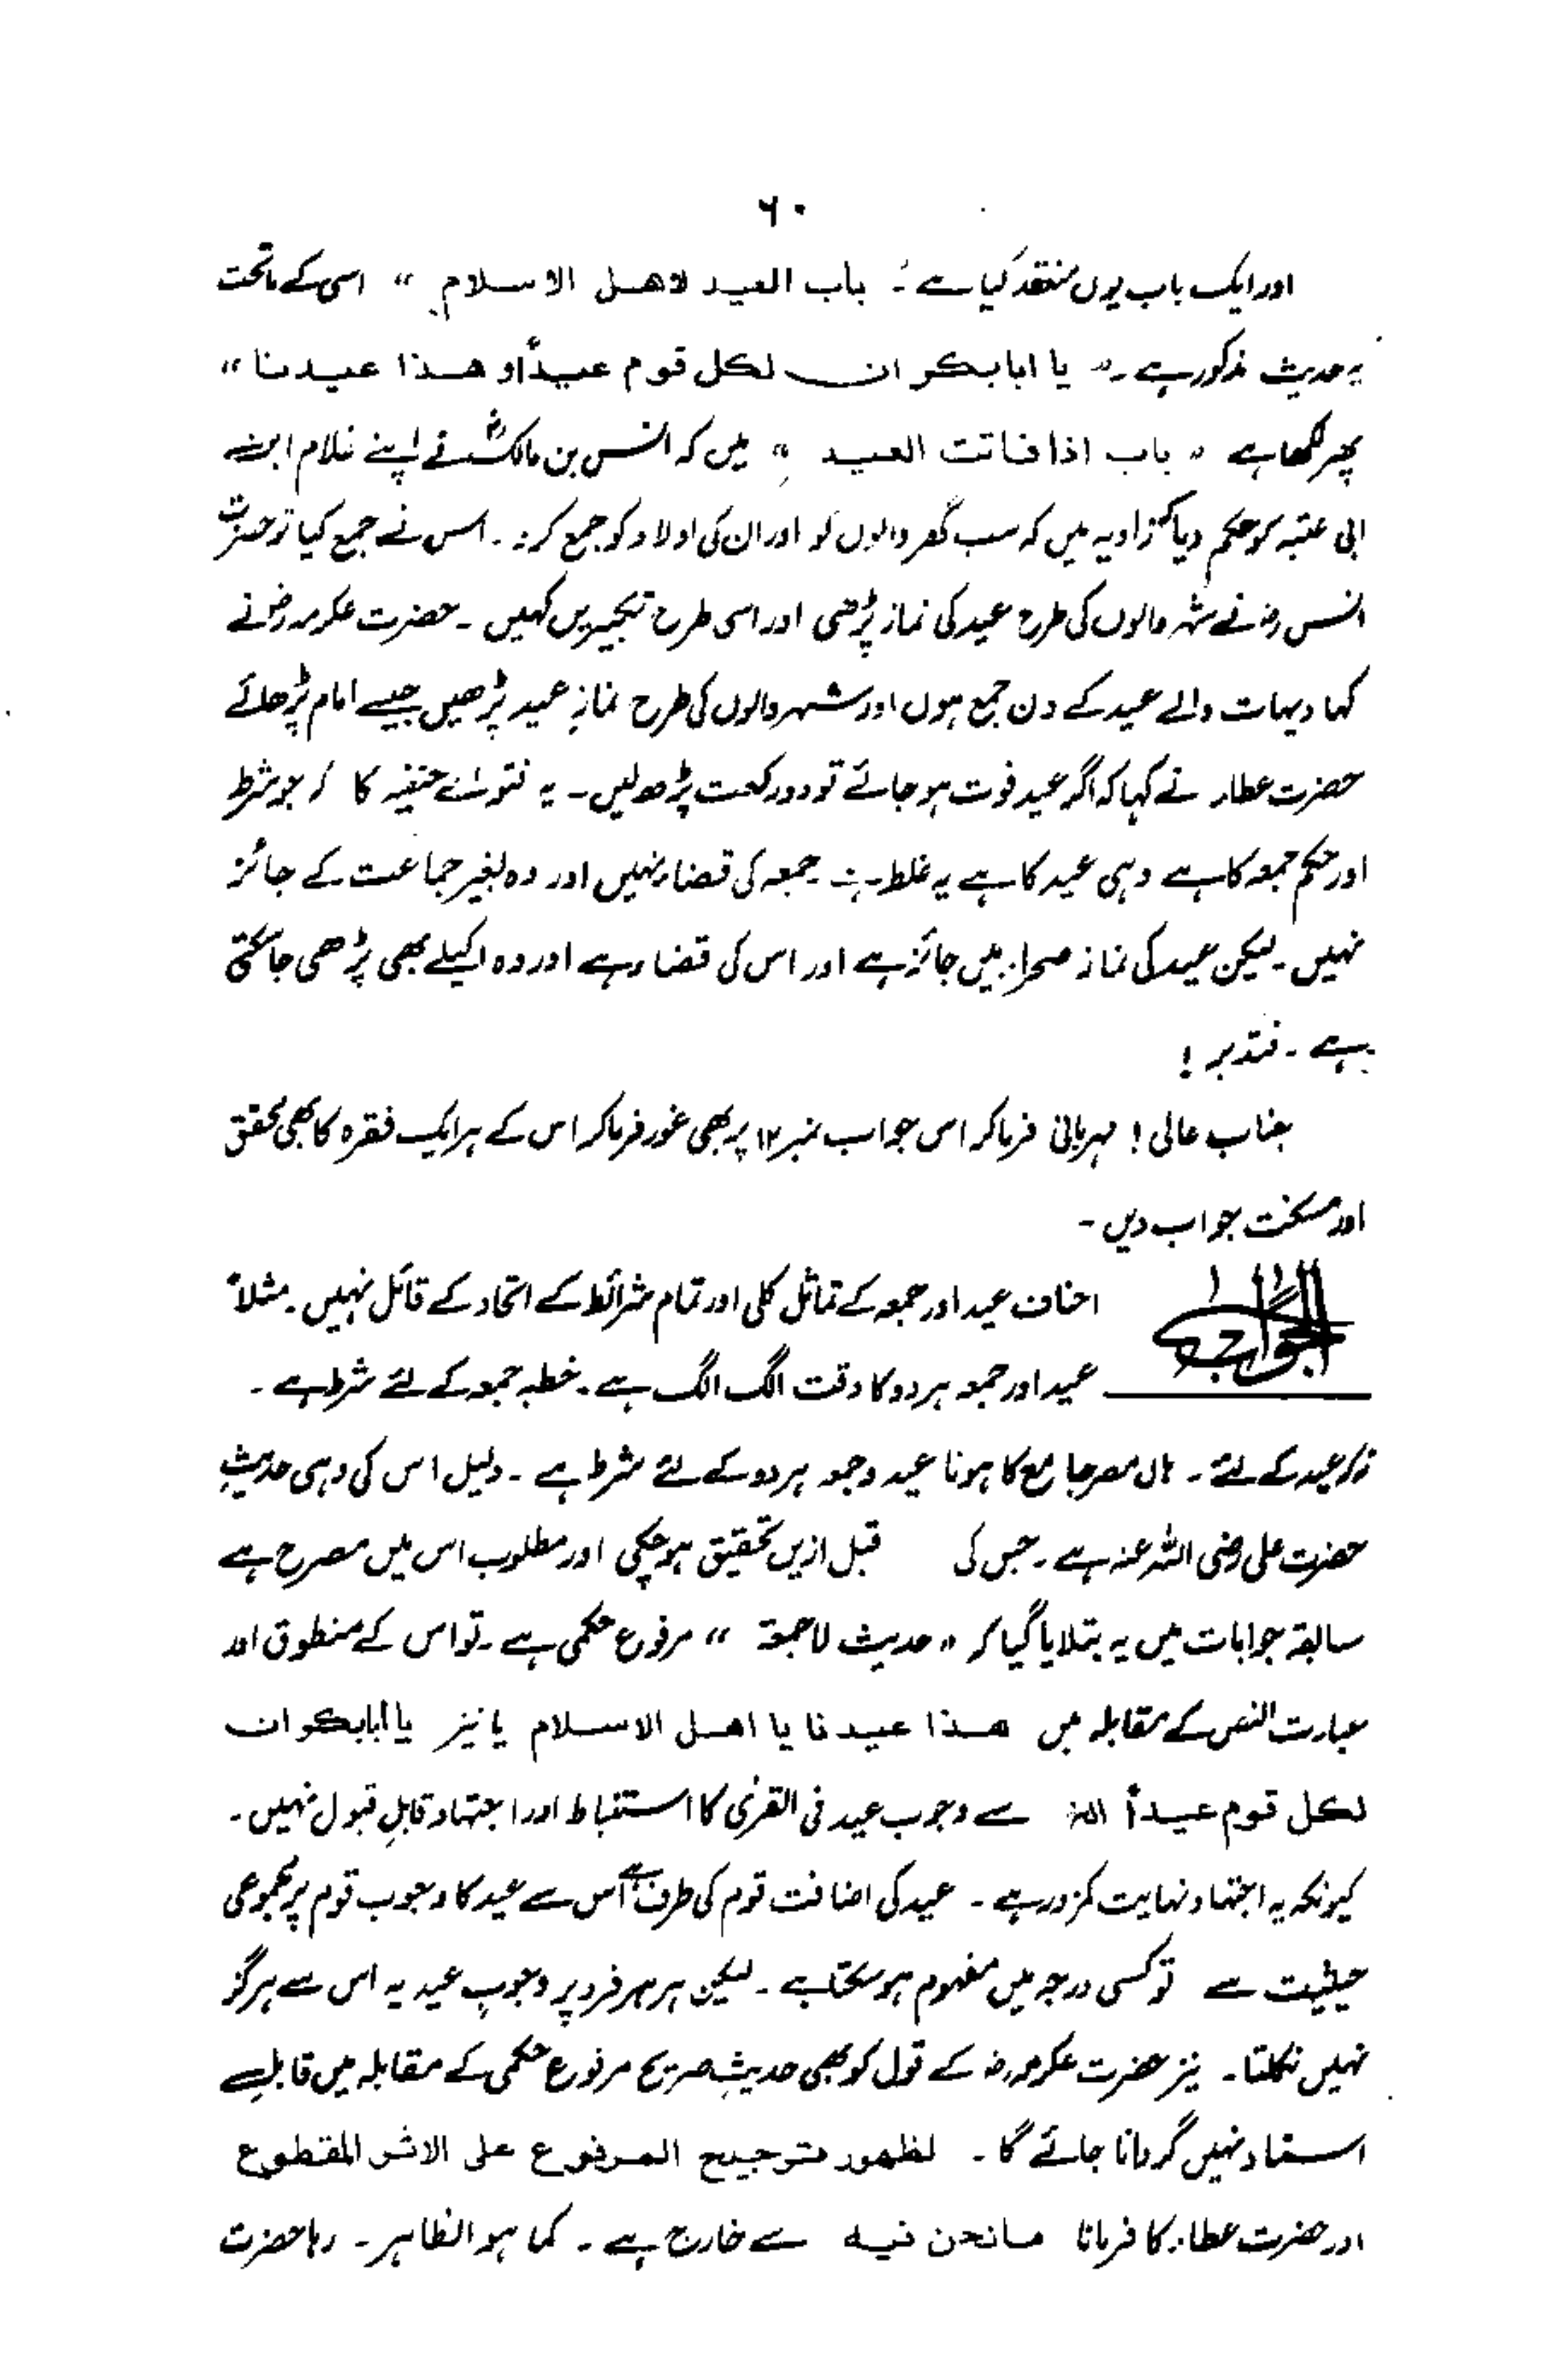 ۶۰
اور ایک باب یوں منعقد کیا ہے: باب العید لاھل الاسلام “ اسی کے ماتحت
یہ حدیث مذکور ہے۔ ” یا ابابکر ان لکل قوم عیداً و ھذا عیدنا “
پھر لکھا ہے ” باب اذا فاتت العید “ میں کہ انس بن مالکؓ نے اپنے غلام ابن
ابی عتبہ کو حکم دیا کہ زاویہ میں کہ سب گھر والوں کو اور ان کی اولاد کو جمع کرو۔ اس نے جمع کیا تو حضرت
انس رضؓ نے شہر والوں کی طرح عید کی نماز پڑھی اور اسی طرح تکبیریں کہیں ۔ حضرت عکرمہ رضؓ نے
کہا دیہات والے عید کے دن جمع ہوں اور شہر والوں کی طرح نمازِ عید پڑھیں جیسے امام پڑھائے
حضرت عطاء نے کہا کہ اگر عید فوت ہو جائے تو دو رکعت پڑھ لیں۔ یہ فتویٰ حنفیہ کا کہ جو شرط
اور حکم جمعہ کا ہے وہی عید کا ہے یہ غلط ہے۔ جمعہ کی قضاء نہیں اور وہ بغیر جماعت کے جائز
نہیں ۔ لیکن عید کی نماز صحراء میں جائز ہے اور اس کی قضاء ہے اور وہ اکیلے بھی پڑھی جا سکتی
ہے ۔ فتدبر !
جناب عالی ! مہربانی فرما کر اس جواب نمبر ۱۲ پر بھی غور فرما کر اس کے ہر ایک فقرہ کا بھی محقق
اور مسکت جواب دیں ۔
الجواب احناف عید اور جمعہ کے تماثل کلی اور تمام شرائط کے اتحاد کے قائل نہیں ۔ مثلاً
عید اور جمعہ ہر دو کا وقت الگ الگ ہے ۔ خطبہ جمعہ کے لئے شرط ہے ۔
نہ کہ عید کے لئے ۔ ہاں مصر جامع کا ہونا عید و جمعہ ہر دو کے لئے شرط ہے ۔ دلیل اس کی وہی حدیثِ
حضرت علی رضی اللہ عنہ ہے ۔ جس کی قبل ازیں تحقیق ہو چکی اور مطلوب اس میں مصرح ہے
سابقہ جوابات میں یہ بتلایا گیا کہ ” حدیث لا جمعۃ “ مرفوع حکمی ہے ۔ تو اس کے منطوق اور
عبارت النص کے مقابلہ میں ھذا عیدنا یا اھل الاسلام یا نیز یا ابابکر ان
لکل قوم عیداً الخ سے وجوب عید فی القریٰ کا استنباط اور اجتہاد قابلِ قبول نہیں ۔
کیونکہ یہ اجتہاد نہایت کمزور ہے ۔ عید کی اضافت قوم کی طرف ہے اس سے عید کا وجوب قوم پر مجموعی
حیثیت سے تو کسی درجہ میں مفہوم ہو سکتا ہے ۔ لیکن ہر ہر فرد پر وجوبِ عید یہ اس سے ہرگز
نہیں نکلتا ۔ نیز حضرت عکرمہ رضؓ کے قول کو بھی حدیثِ صریح مرفوع حکمی کے مقابلہ میں قابلِ
استناد نہیں گردانا جائے گا ۔ لظھور ترجیح المرفوع علی الاثر المقطوع
اور حضرت عطاء کا فرمانا ما نحن فیه سے خارج ہے ۔ کما ہو الظاہر ۔ رہا حضرت